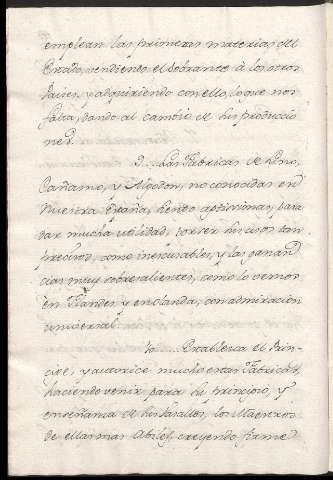 emplean las primeras materias del
Estado, vendiendo el sobrante à los otros
Paises, y adquiriendo con ello, lo que nos
falta, dando al cambio de sus produccio
nes.
9... Las Fabricas de Lino,
Cañamo, y Algodon, no conocidas en
Nuestra España, siendo aptissimas, para
dar mucha utilidad, por ser sus usos tan
precisos, como inexcusables, y las ganan
cias muy sobresalientes, como lo vemos
en Flandes, y en Olanda, con admiracion
universal.
10... Establezca el Prin-
cipe, y autorice mucho estas Fabricas,
haciendo venir para su principio, y
enseñanza de sus Vasallos, los Maestros
de ellas mas Abiles, creyendo firme